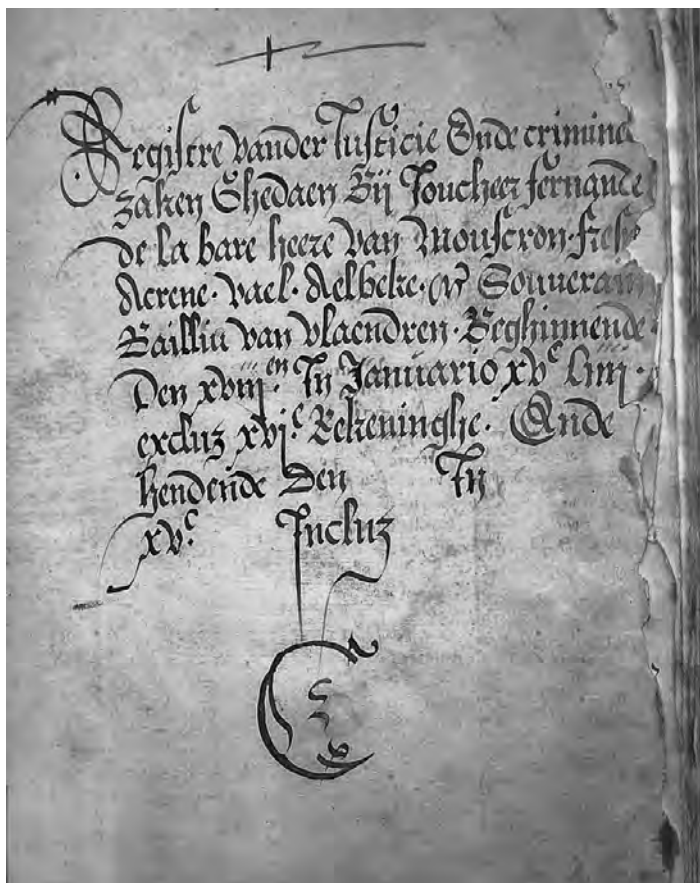 Registre vander Justicie Ende crimine
zaken Ghedaen Bij Joncheer fernande
de la bare heere van Mouscron
Aerene · vael · Aelbeke · en Souverain
Bailliu van vlaendren · Beghinnende
Den xviij en In Januario xv c Liiij ·
excluz xvj c Rekeninghe · Ende
hendende Den In
xv c Incluz